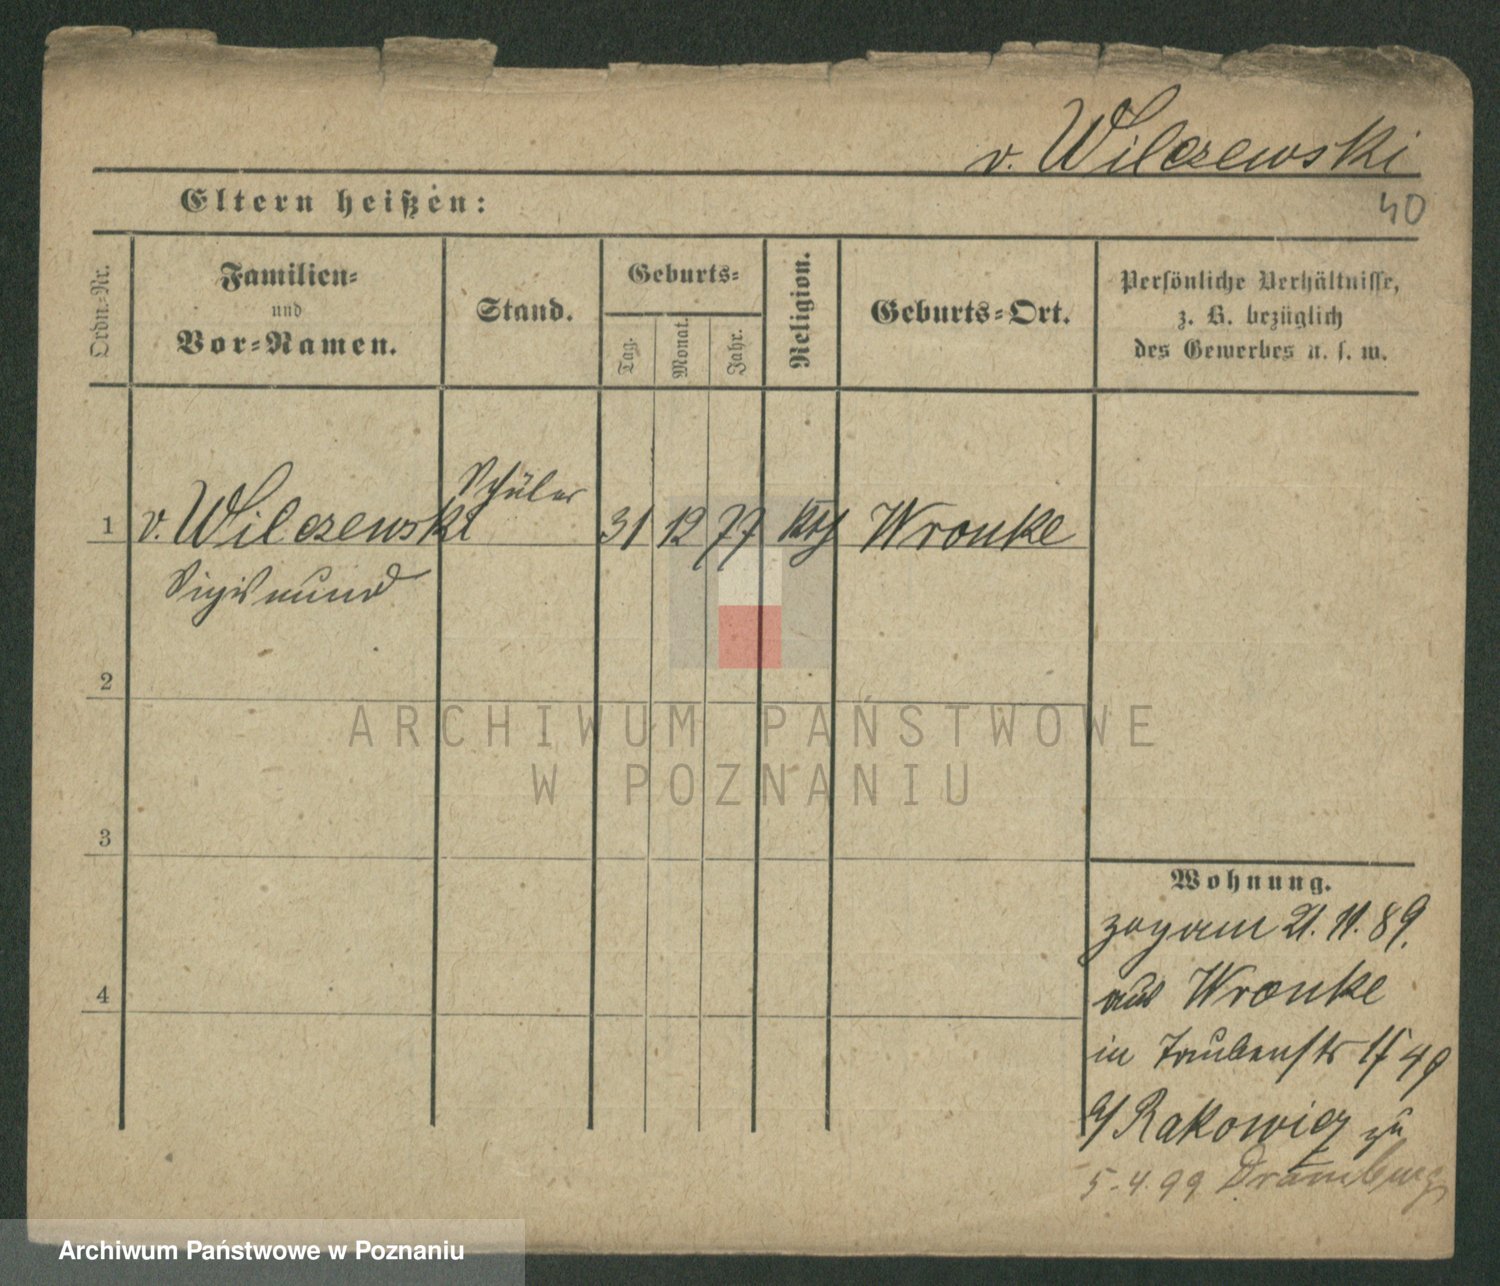 v. Wilczewski
Eltern heißen:
40
Ordn.-Nr.
Familien-
und
Vor-Namen.
Stand.
Geburts-
Tag.
Monat.
Jahr.
Religion.
Geburts-Ort.
Persönliche Verhältnisse,
z. B. bezüglich
des Gewerbes u. s. w.
Schüler
1 v. Wilczewski 31 12 77 kth Wronke
Sigismund
2
3
4
ARCHIWUM PAŃSTWOWE
W POZNANIU
Wohnung.
zog am 21. 11. 89.
aus Wronke
in Taubenstr
Rakowicz zu
5.4.99 Dramburg
Archiwum Państwowe w Poznaniu